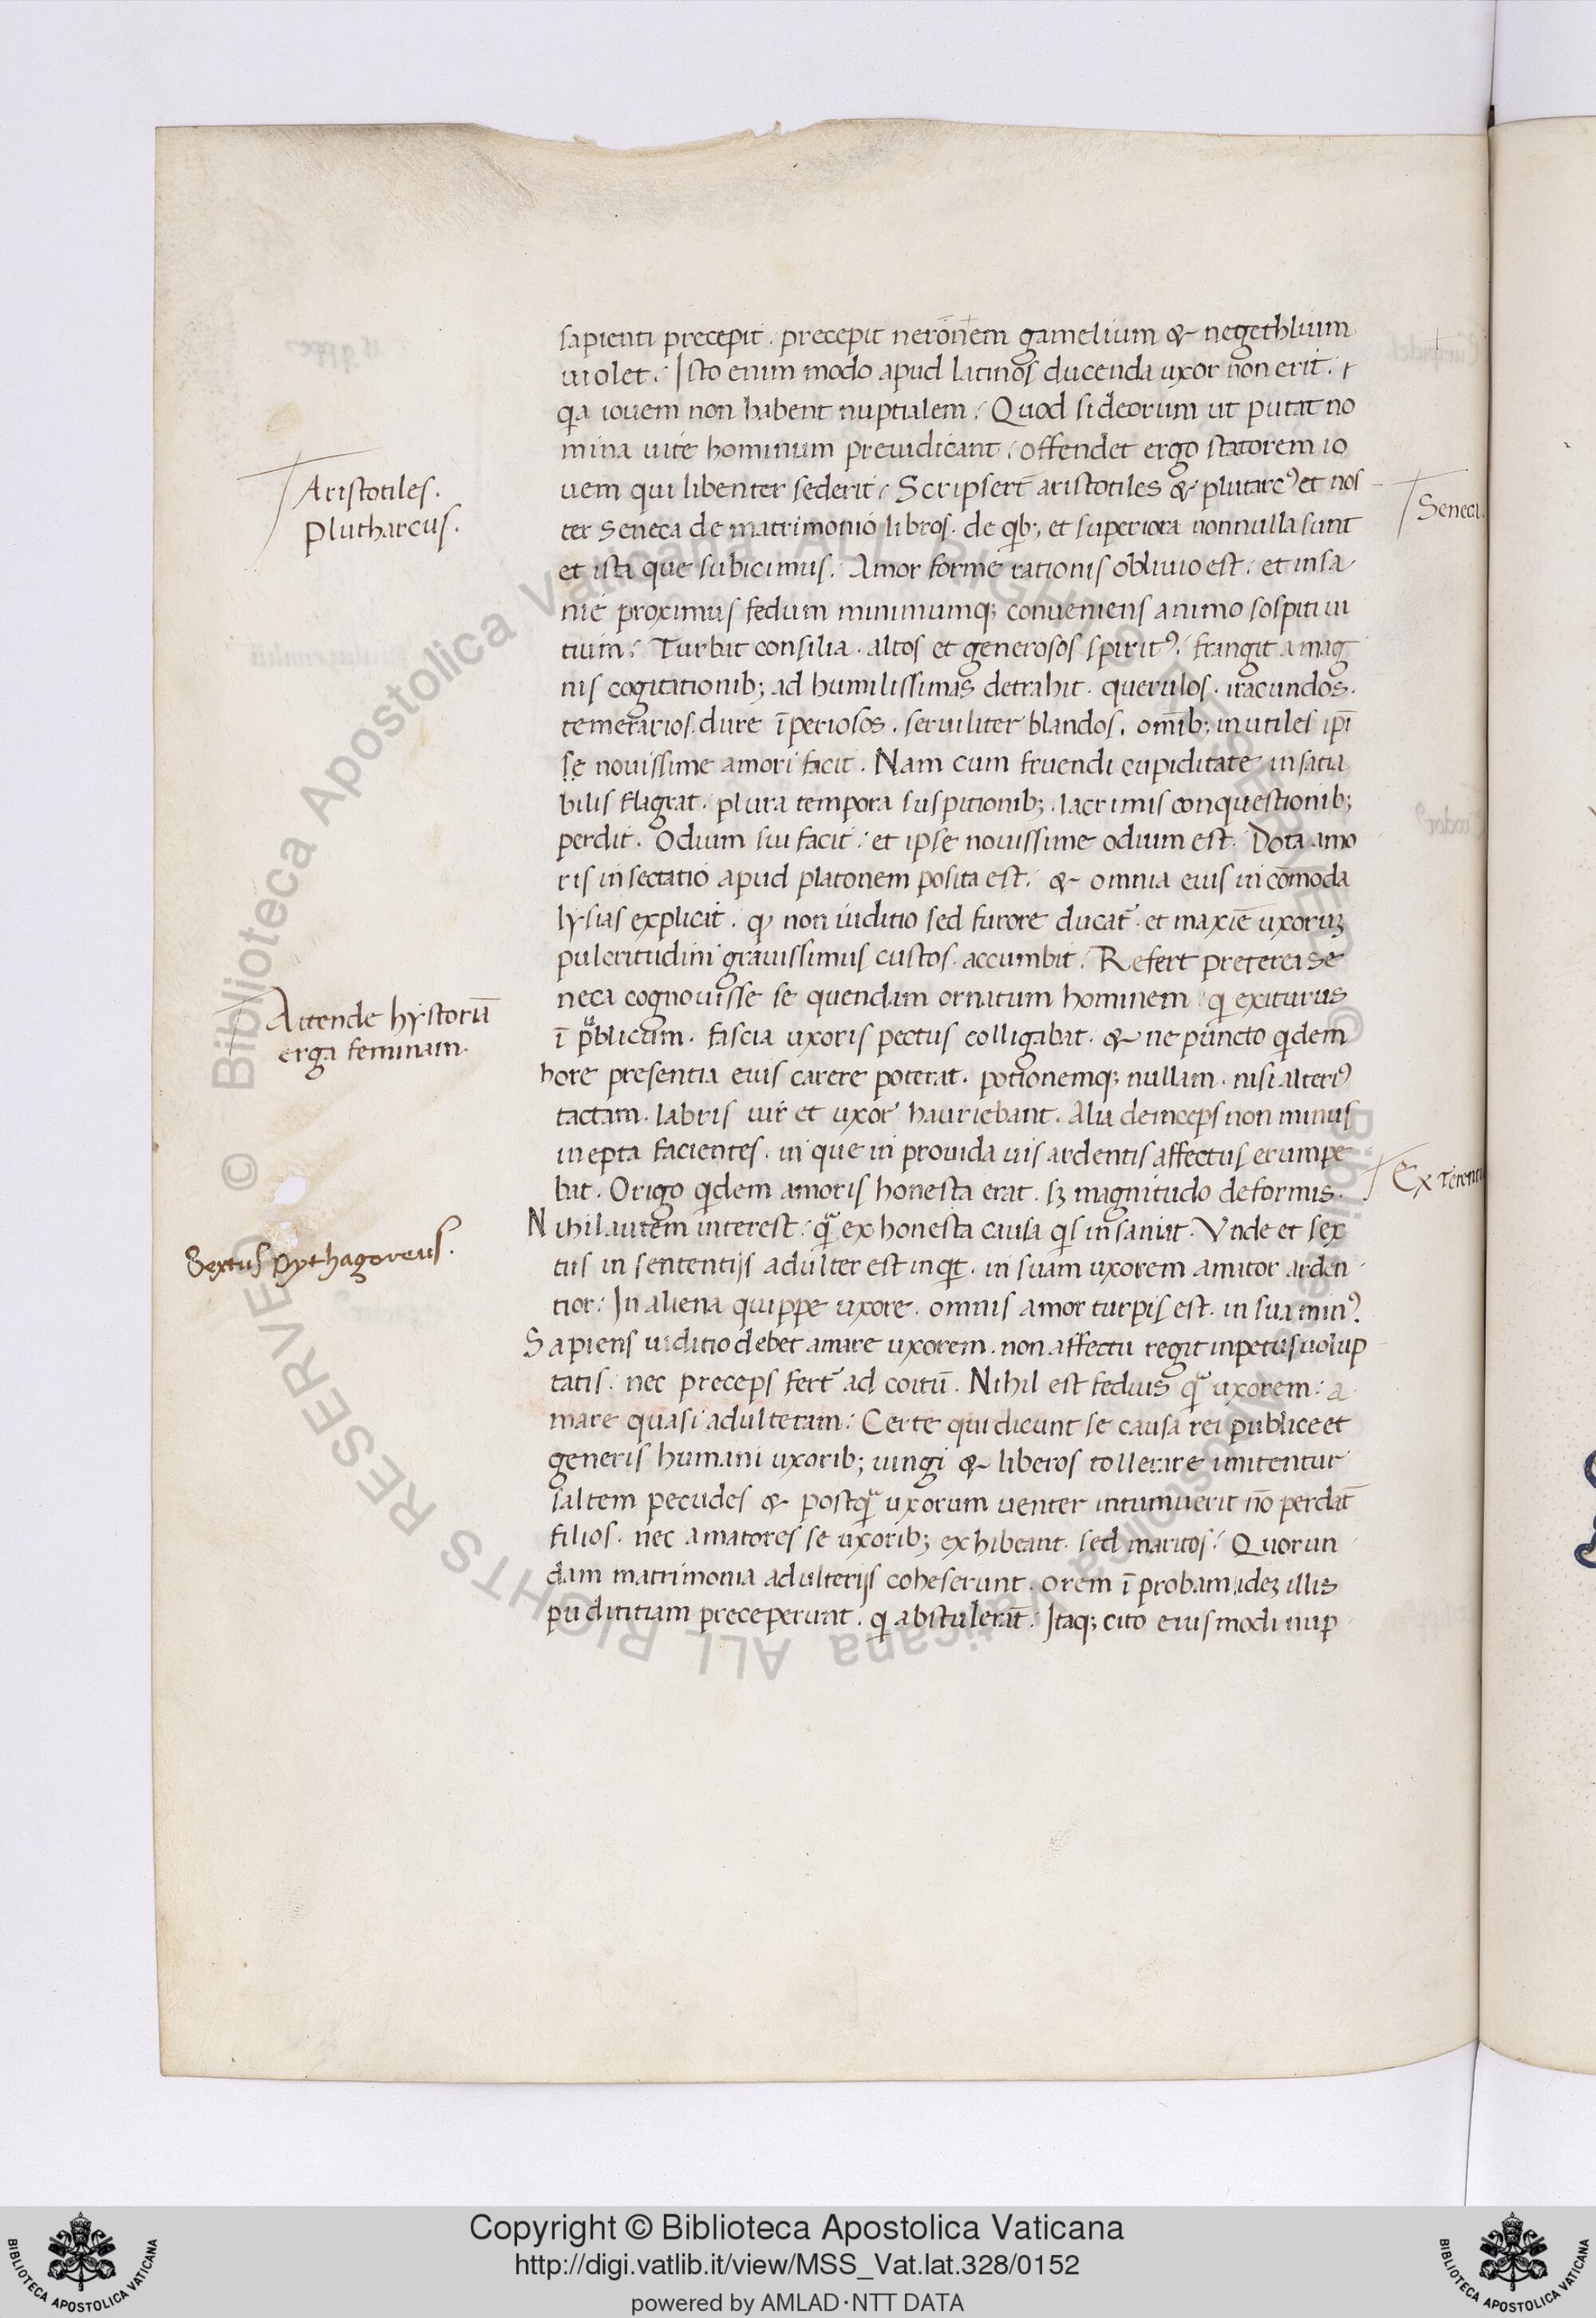 sapienti precepit. precepit neronem gamelium & negethlium
uiolet. Isto enim modo apud latinos ducenda uxor non erit.
qa iouem non habent nuptialem. Quod si deorum ut putat no
mina uite hominum preiudicant. offendet ergo statorem io
uem qui libenter sederit. Scripsert̄ aristotiles & plutarcꝰ et nos
ter Seneca de matrimonio libros. de qb; et superiora nonnulla sunt
et ista que subicimus. Amor forme rationis obliuio est. et insa
nie proximus fedum minimumq; conueniens animo sospiti ui
tium. Turbat consilia. altos et generosos spiritꝰ. frangit a mag
nis cogitationib; ad humilissimas detrahit. querulos. iracundos.
temerarios. dure īperiosos. seruiliter blandos. om̄ib; inutiles ip̄i
se nouissime amori facit. Nam cum fruendi cupiditate insatia
bilis flagrat. plura tempora suspitionib; lacrimis conquestionib;
perdit. Odium sui facit. et ipse nouissime odium est. Dota amo
ris insectatio apud platonem posita est. & omnia eius incōmoda
lysias explicat. ꝙ non iuditio sed furore ducat̄. et maxiē uxorꝝ
pulcritudini grauissimus custos. accumbit. Refert preterea Se
neca cognouisse se quendam ornatum hominem qi exiturus
ī publicum. fascia uxoris pectus colligabat. & ne puncto qidem
hore presentia eius carere poterat. potionemq; nullam. nisi alterꝰ
tactam. labris uir et uxor hauriebant. Alia deinceps non minus
inepta facientes. in que in prouida uis ardentis affectus erumpe
bat. Origo qidem amoris honesta erat. sꝫ magnitudo deformis.
Nihil autem interest. qª ex honesta causa qis insaniat. Vnde et sex
tus in sententijs adulter est inqt. in suam uxorem amator arden
tior. In aliena quippe uxore. omnis amor turpis est. in sua minꝰ.
Sapiens iuditio debet amare uxorem. non affectu regit inpetus uolup
tatis. nec preceps fert̄ ad coitū. Nihil est fedius qª uxorem. a
mare quasi adulteram. Certe qui dicunt se causa rei publice et
generis humani uxorib; iungi & liberos tollerare imitentur
saltem pecudes & postqª uxorum uenter intumuerit nō perdāt
filios. nec amatores se uxorib; exhibeant. sed maritos. Quorun
dam matrimonia adulterijs coheserunt. orem īprobam ideꝫ illis
pudititiam preceperunt. qi abstulerāt. Itaq; cito eiusmodi nup
Aristotiles.
Plutharcus.
Seneca.
Attende hystoriā
erga feminam.
Ex Terenti
Sextus pythagoreus.
Copyright © Biblioteca Apostolica Vaticana
http://digi.vatlib.it/view/MSS_Vat.lat.328/0152
powered by AMLAD·NTT DATA
© Biblioteca Apostolica Vaticana ALL RIGHTS RESERVED
BIBLIOTECA APOSTOLICA VATICANA
BIBLIOTECA APOSTOLICA VATICANA